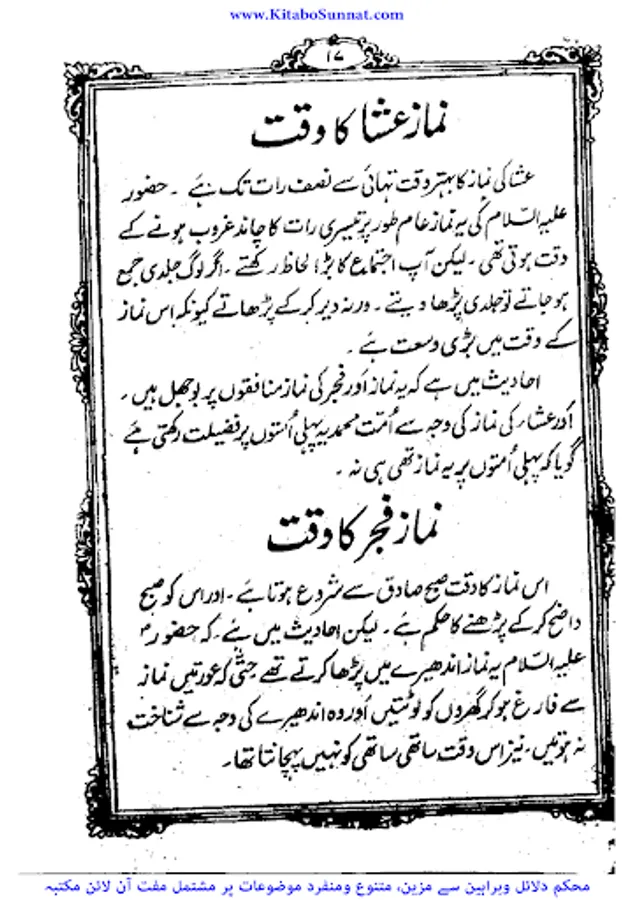 www.KitaboSunnat.com
۱۷
نماز عشا کا وقت
عشا کی نماز کا بہتر وقت تہائی سے نصف رات تک ہے ۔ حضور
علیہ السّلام کی یہ نماز عام طور پر تیسری رات کا چاند غروب ہونے کے
وقت ہوتی تھی ۔ لیکن آپ اجتماع کا بڑا لحاظ رکھتے ۔ اگر لوگ جلدی جمع
ہو جاتے تو جلدی پڑھا دیتے ۔ ورنہ دیر کر کے پڑھاتے کیونکہ اس نماز
کے وقت میں بڑی وسعت ہے ۔
احادیث میں ہے کہ یہ نماز اور فجر کی نماز منافقوں پر بوجھل ہیں ۔
اور عشاء کی نماز کی وجہ سے اُمّت محمدیہ پہلی اُمتوں پر فضیلت رکھتی ہے
گویا کہ پہلی اُمتوں پر یہ نماز تھی ہی نہ ۔
نماز فجر کا وقت
اس نماز کا وقت صبح صادق سے شروع ہوتا ہے ۔ اور اس کو صبح
واضح کر کے پڑھنے کا حکم ہے ۔ لیکن احادیث میں ہے ۔ کہ حضور
علیہ السّلام یہ نماز اندھیرے میں پڑھا کرتے تھے حتیٰ کہ عورتیں نماز
سے فارغ ہو کر گھروں کو لوٹتیں اور وہ اندھیرے کی وجہ سے شناخت
نہ ہوتیں ۔ نیز اس وقت ساتھی ساتھی کو نہیں پہچانتا تھا ۔
محکم دلائل وبراہین سے مزین، متنوع ومنفرد موضوعات پر مشتمل مفت آن لائن مکتبہ